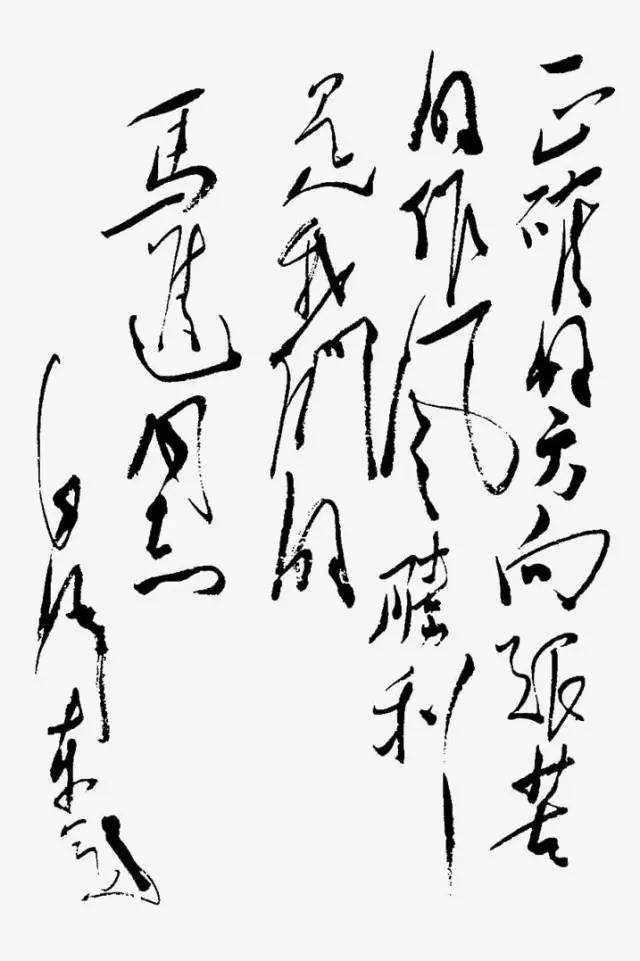 正確的方向艱苦
的作风勝利
是我們的
馬進同志
毛澤東題